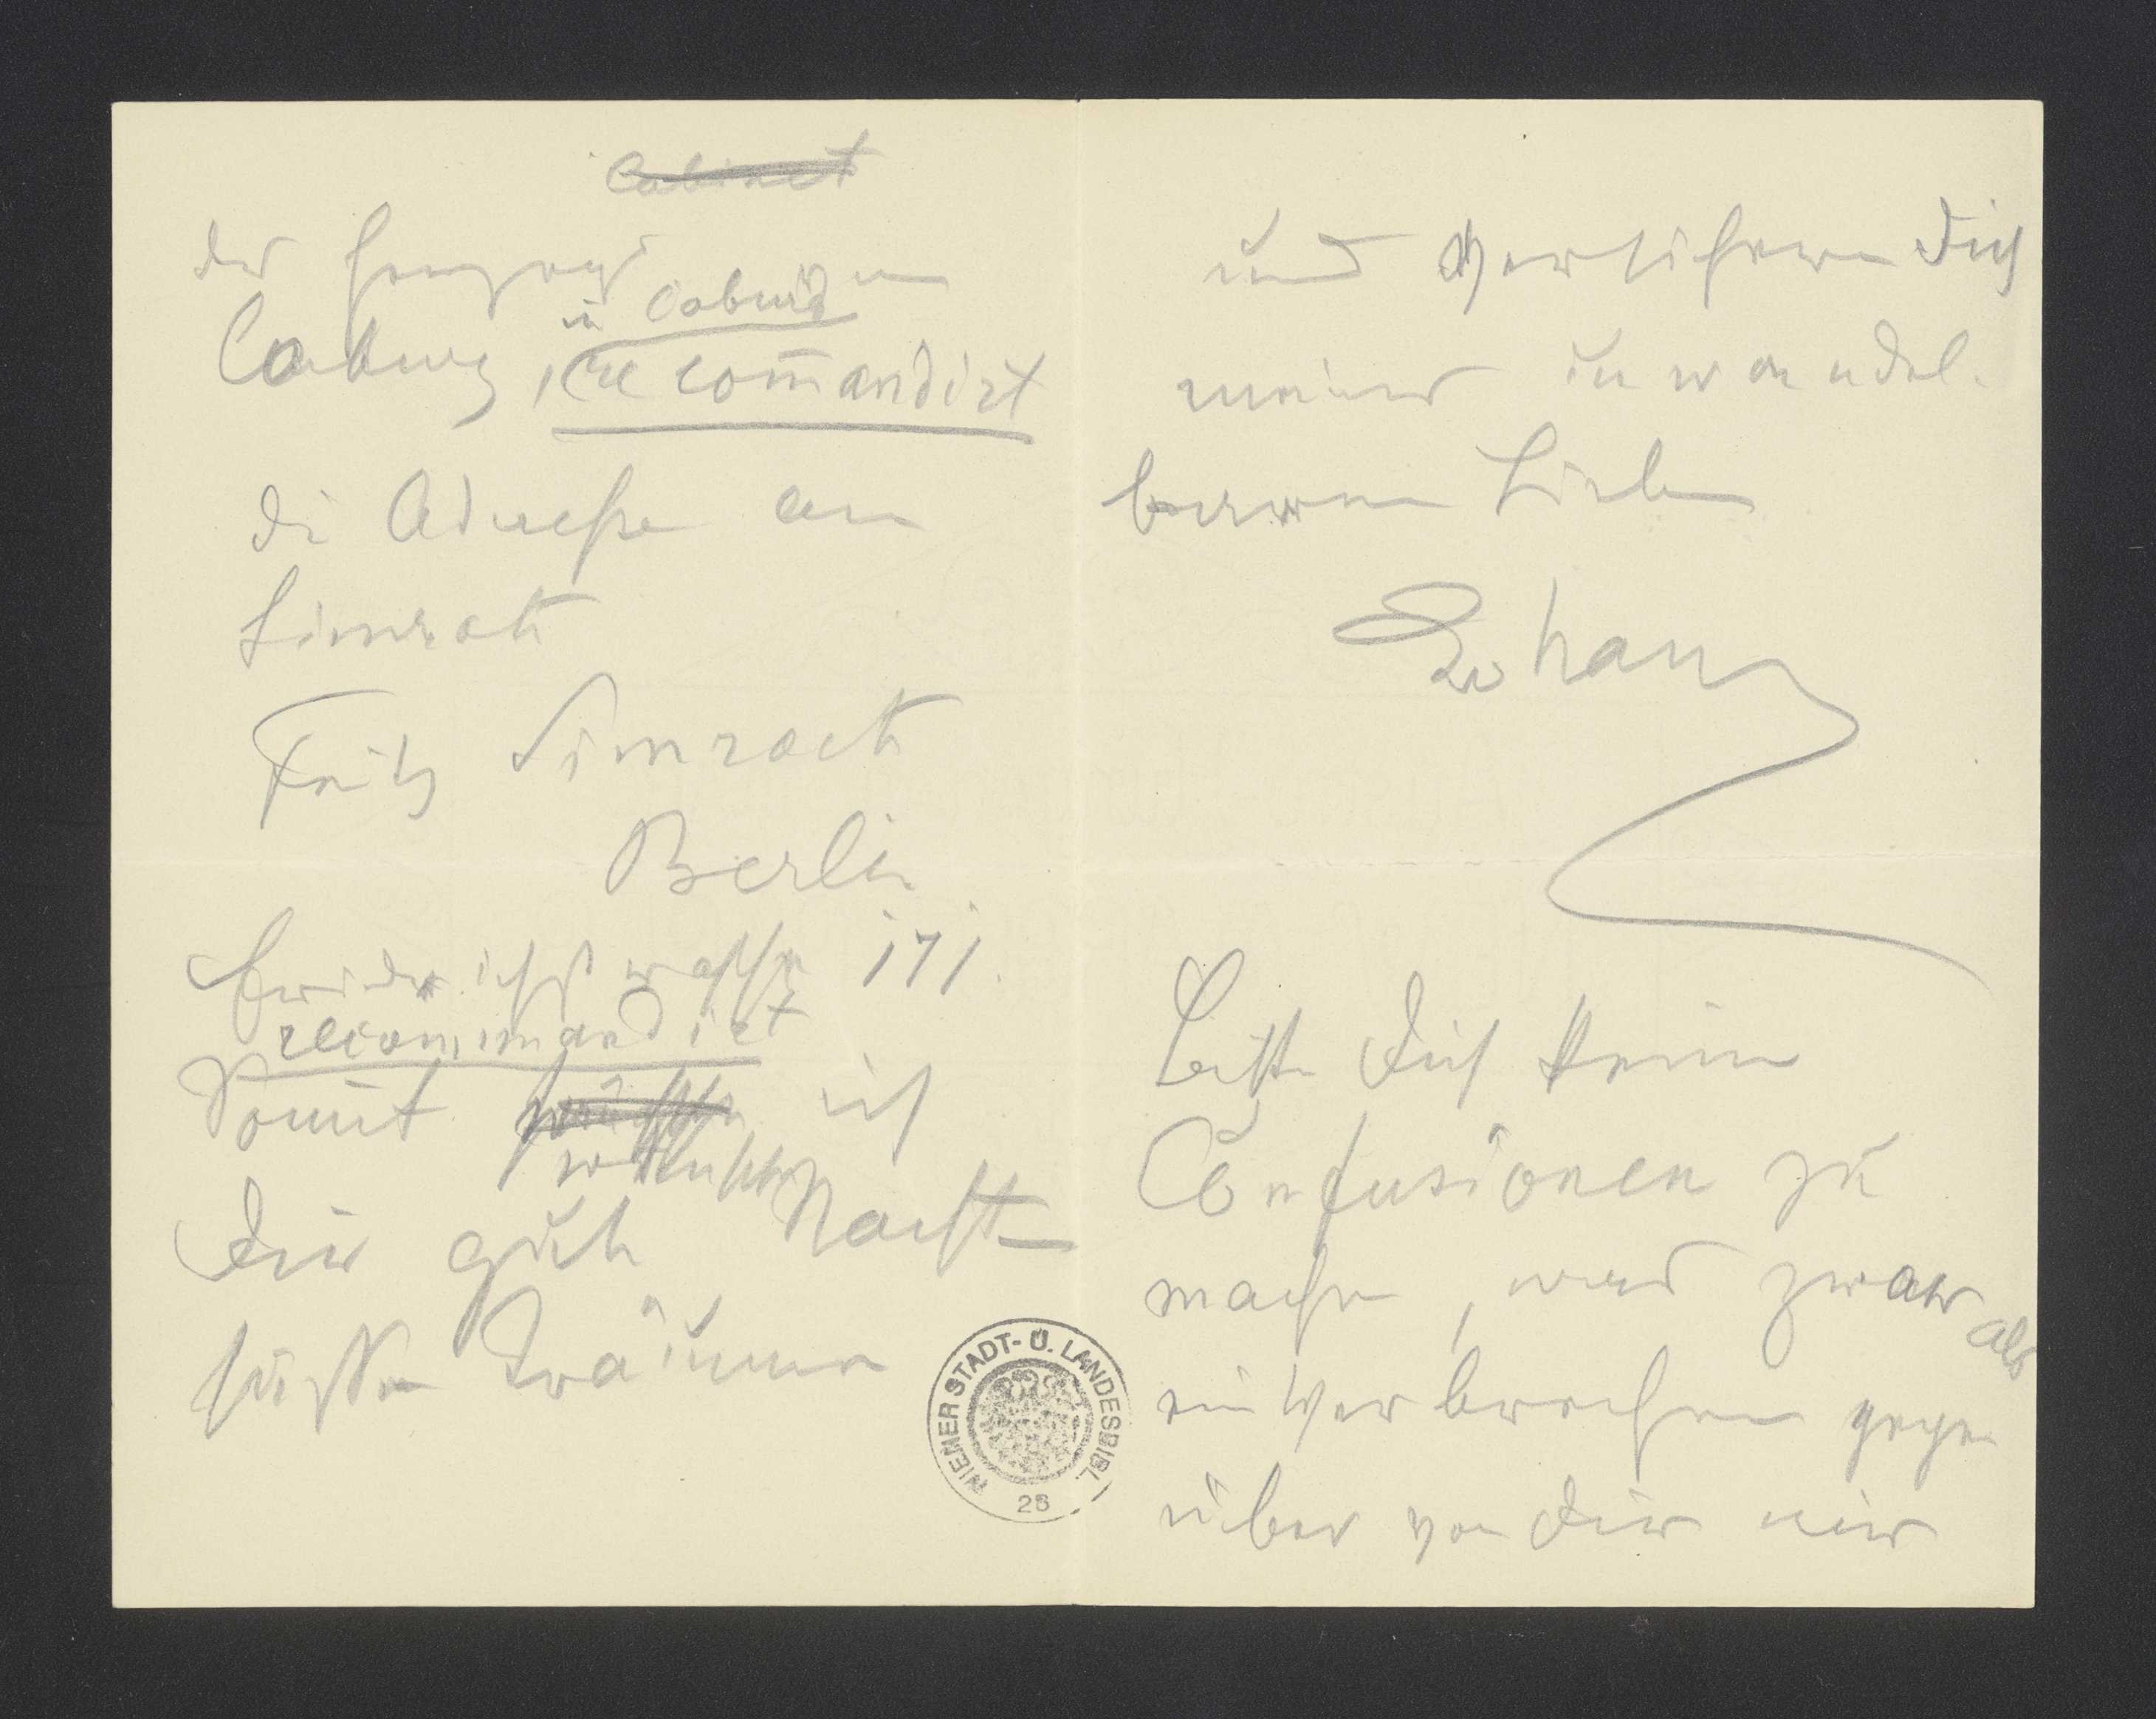 Cabinet
des Herzogs von
Coburg, in Coburg
recom̄andirt
die Adresse an
Simrock
Fritz Simrock
Berlin
Friedrichstrasse 171.
recommandirt
Som̄it wünsche ich
Dir gute Nacht
süße Träume
und versichere Dich
meiner unwandel-
baren Liebe
Johann
Bitte Dich keine
Confusionen zu
machen, und zwar als
ein Verbrechen gegen
über von Dir mir
WIENER STADT- U. LANDESBIBL.
28